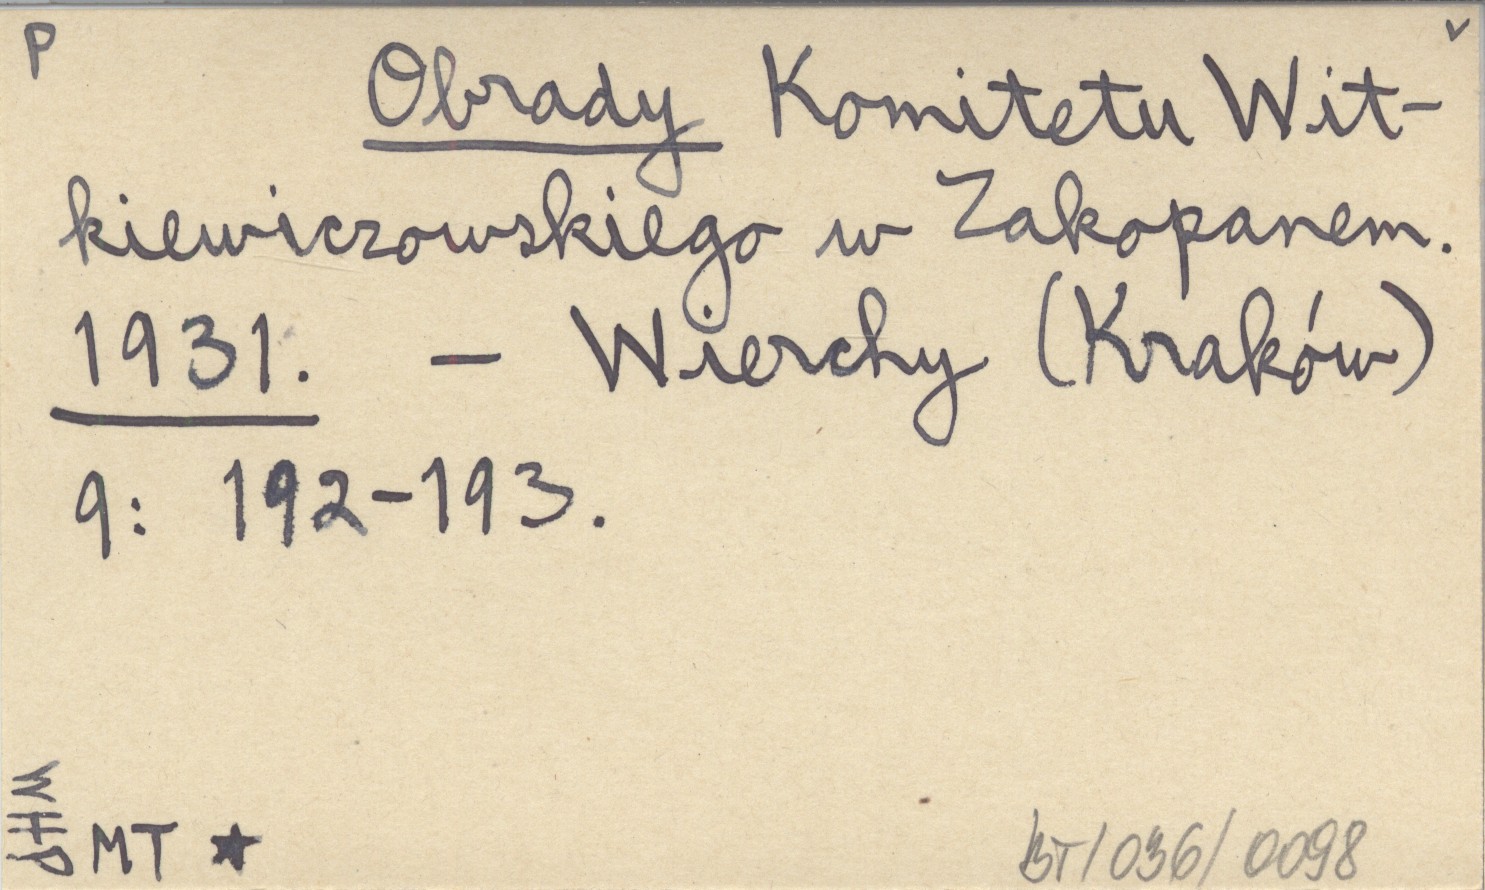 P
v
Obrady Komitetu Wit-
kiewiczowskiego w Zakopanem.
1931. – Wierchy (Kraków)
9: 192-193.
WHP
MT ★
BT/036/0098